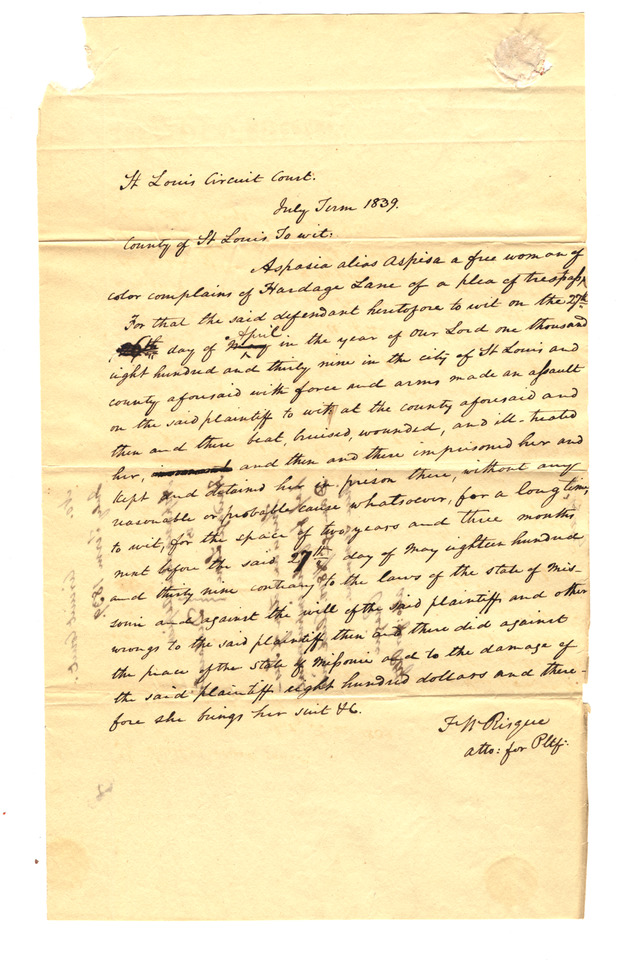 St Louis Circuit Court.
July Term 1839.
County of St Louis To wit:
Aspasia alias Aspisa a free woman of
color complains of Hardage Lane of a plea of trespass,
For that the said defendant heretofore to wit on the 27th
day of April in the year of our Lord one thousand
eight hundred and thirty nine in the city of St Louis and
county aforesaid with force and arms made an assault
on the said plaintiff to wit at the county aforesaid and
then and there beat, bruised, wounded, and ill-treated
her, and then and there imprisoned her and
kept and detained her in prison there, without any
reasonable or probable cause whatsoever, for a long time,
to wit, for the space of two years and three months
next before the said 27th day of May eighteen hundred
and thirty nine contrary to the laws of the state of Mis-
souri and against the will of the said plaintiff, and other
wrongs to the said plaintiff then and there did against
the peace of the State of Missouri and to the damage of
the said plaintiff eight hundred dollars and there-
fore she brings her suit &c.
F W Risque
atto: for Pltf: